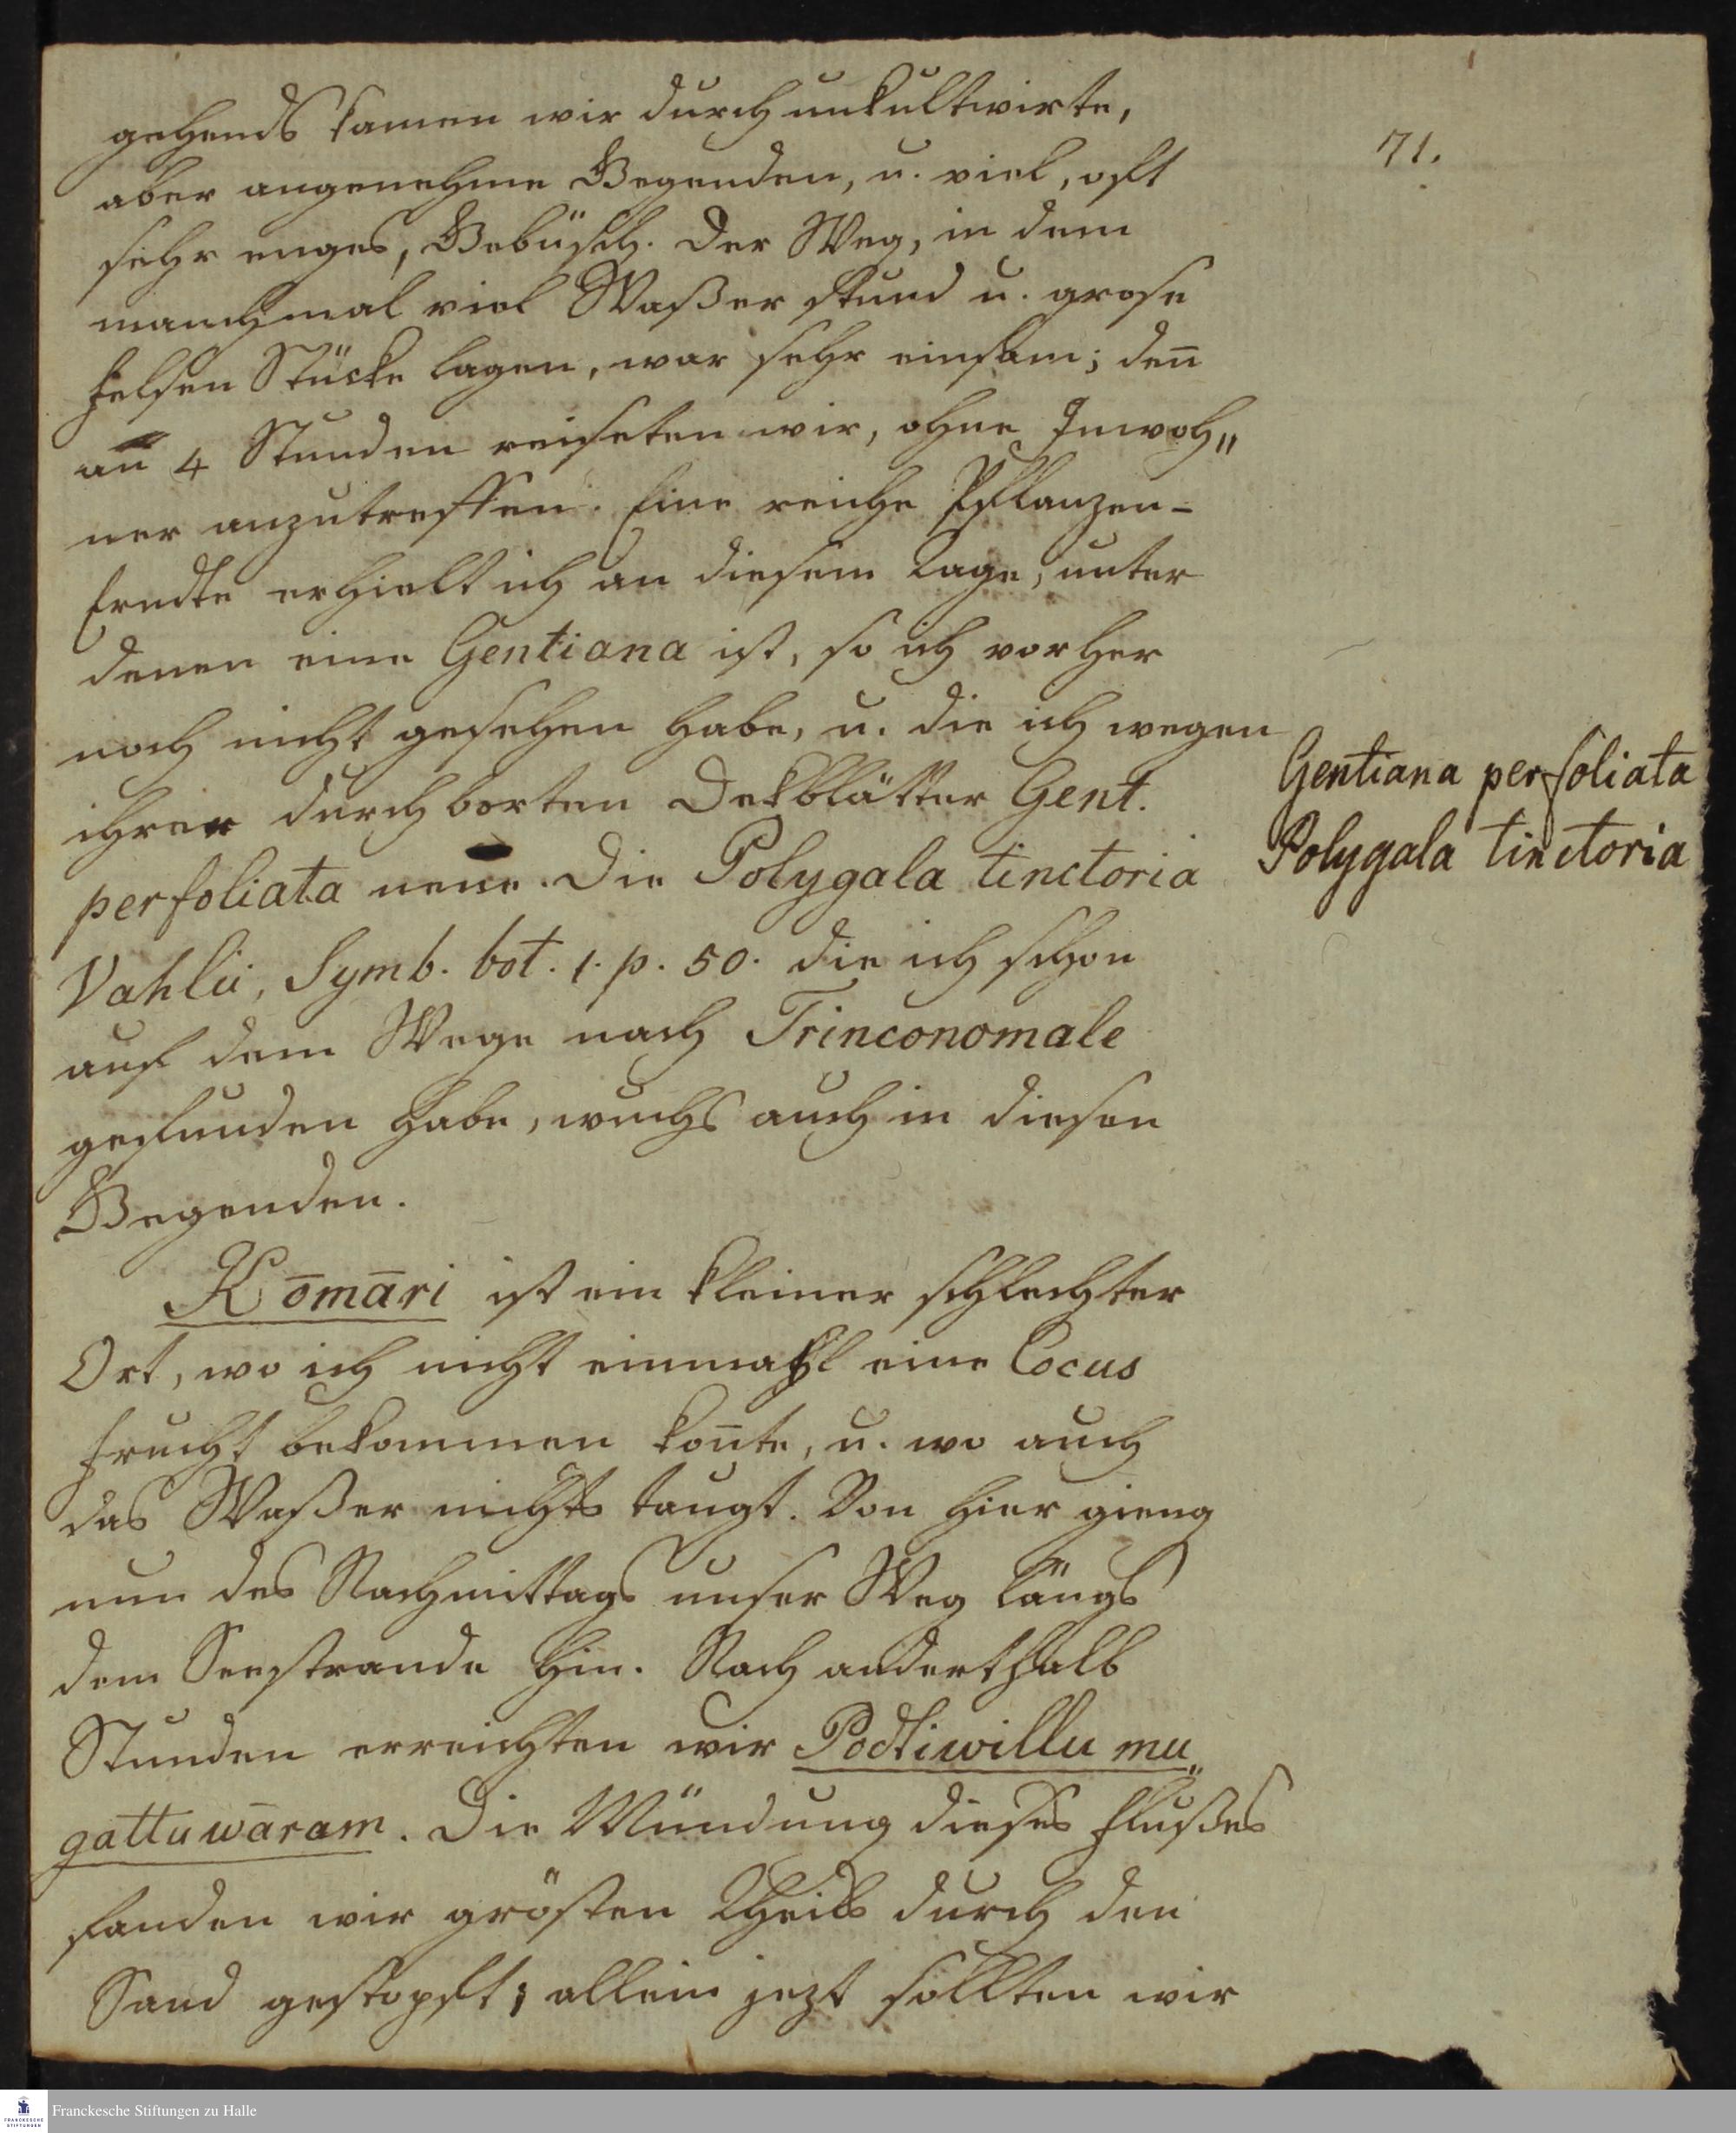 71.
gehends kamen wir durch unkultivirte,
aber angenehme Gegenden, u. viel, oft
sehr enges, Gebüsch. Der Weg, in dem
manchmal viel Waßer stund u. grose
Felsen Stücke lagen, war sehr einsam; den̄
an 4 Stunden reiseten wir, ohne Inwoh„
ner anzutreffen. Eine reiche Pflanzen-
Erndte erhielt ich an diesem Tage, unter
denen eine Gentiana ist, so ich vorher
noch nicht gesehen habe, u. die ich wegen
ihrer durchborten Dekblätter Gent.
perfoliata nene. Die Polygala tinctoria
Vahlii, Symb. bot. 1. p. 50. die ich schon
auf dem Wege nach Trinconomale
gefunden habe, wuchs auch in diesen
Gegenden.
Gentiana perfoliata
Polygala tinctoria
Kōmāri ist ein kleiner schlechter
Ort, wo ich nicht einmahl eine Cocus
Frucht bekommen kon̄te, u. wo auch
das Waßer nichts taugt. Von hier gieng
nun des Nachmittags unser Weg längs
dem Seestrande hin. Nach anderthalb
Stunden erreichten wir Pottiwillu mu„
gattuwāram. Die Mündung dieses Flußes
fanden wir grösten Theils durch den
Sand gestopft; allein jezt sollten wir
Franckesche Stiftungen zu Halle
FRANCKESCHE
STIFTUNGEN